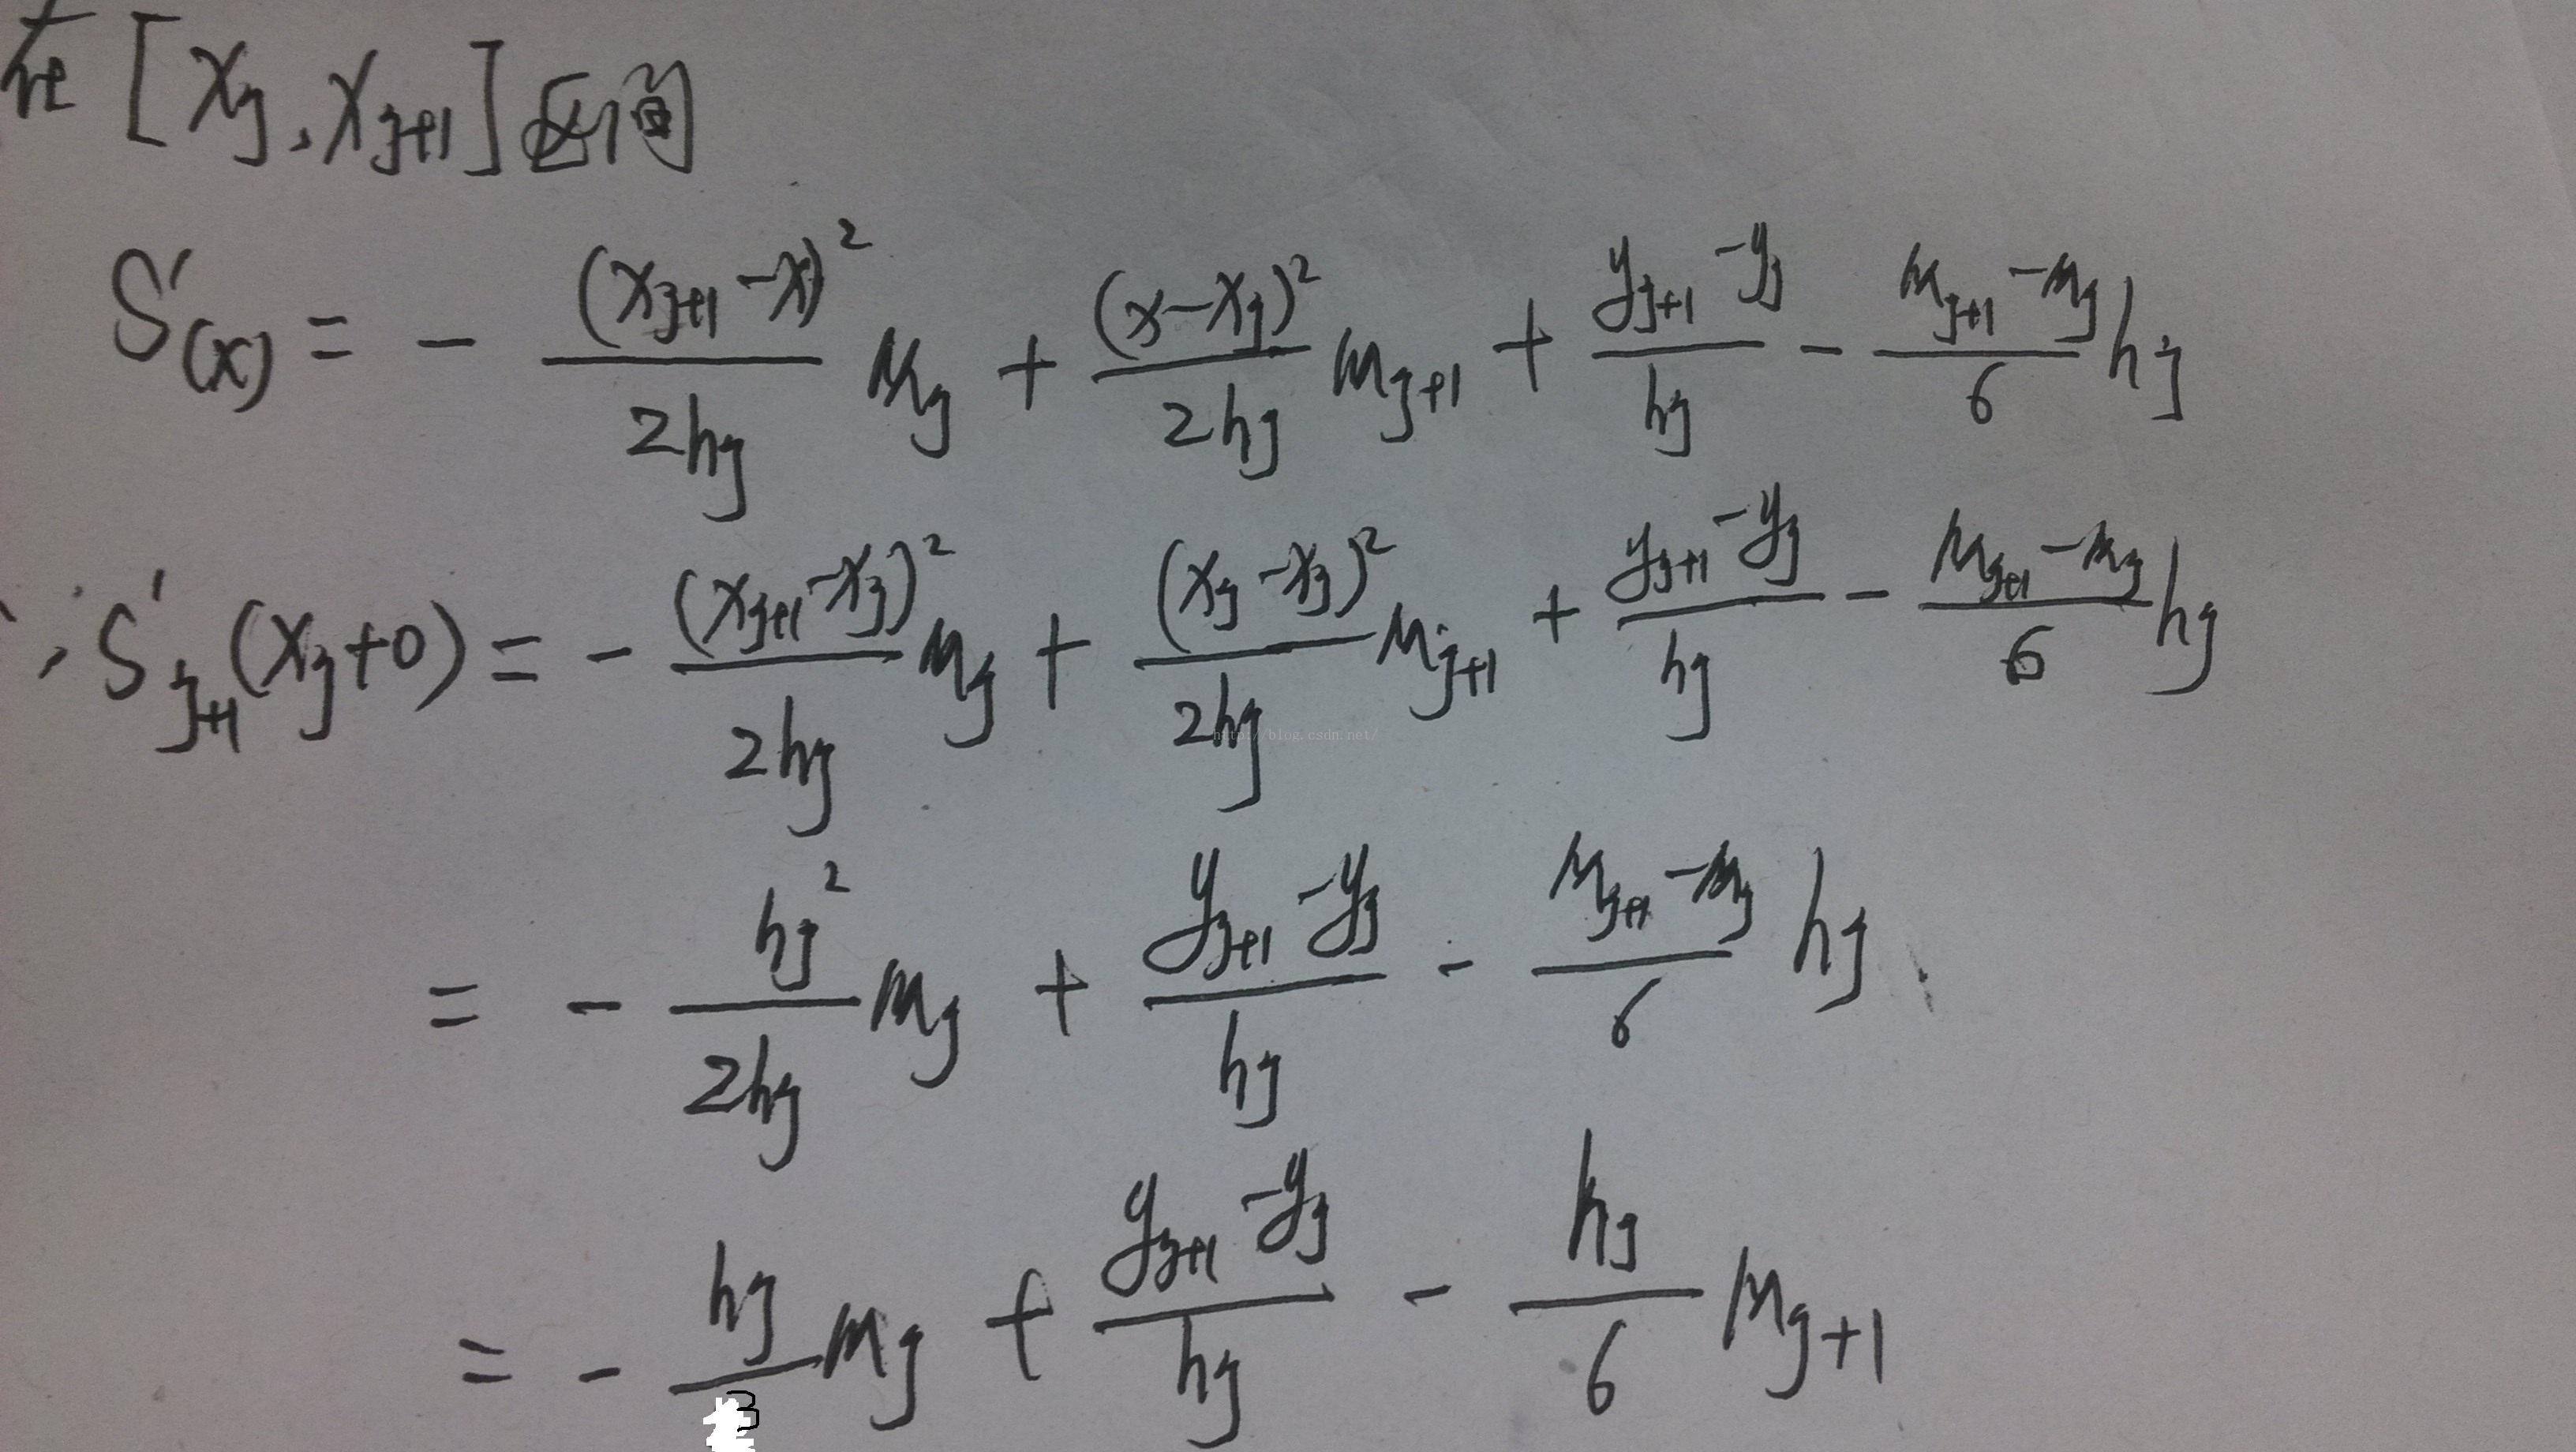 在 [x_j, x_{j+1}] 区间
S'(x) = - \frac{(x_{j+1}-x)^2}{2h_j} M_j + \frac{(x-x_j)^2}{2h_j} M_{j+1} + \frac{y_{j+1}-y_j}{h_j} - \frac{M_{j+1}-M_j}{6} h_j
S'_{j+1}(x_j+0) = - \frac{(x_{j+1}-x_j)^2}{2h_j} M_j + \frac{(x_j-x_j)^2}{2h_j} M_{j+1} + \frac{y_{j+1}-y_j}{h_j} - \frac{M_{j+1}-M_j}{6} h_j
http://blog.csdn.net/
= - \frac{h_j^2}{2h_j} M_j + \frac{y_{j+1}-y_j}{h_j} - \frac{M_{j+1}-M_j}{6} h_j
= - \frac{h_j}{3} M_j + \frac{y_{j+1}-y_j}{h_j} - \frac{h_j}{6} M_{j+1}